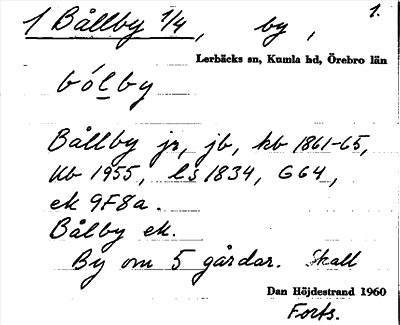 1 Bållby 1/4, by, 1.
Lerbäcks sn, Kumla hd, Örebro län
bólby
Bållby jr, jb, kb 1861-65,
Ub 1955, ls 1834, G64,
ek 9F8a.
Bålby ek.
By om 5 gårdar. Skall
Dan Höjdestrand 1960
Forts.